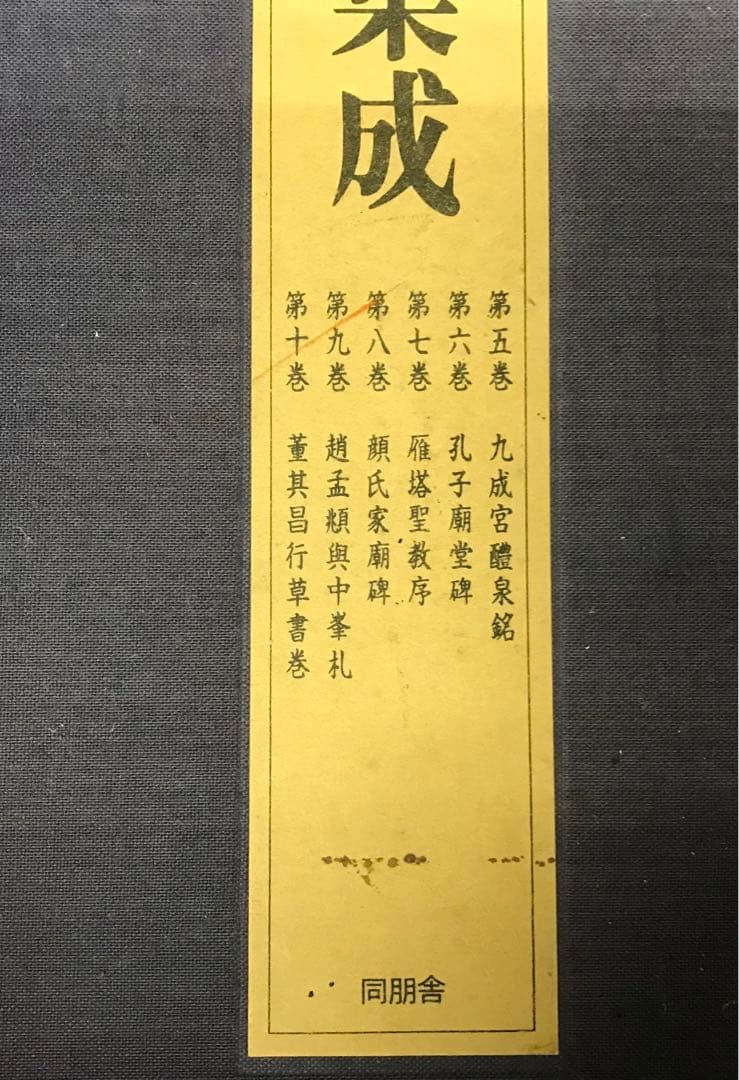 集成
第五巻 九成宮醴泉銘
第六巻 孔子廟堂碑
第七巻 雁塔聖教序
第八巻 顔氏家廟碑
第九巻 趙孟頫與中峯札
第十巻 董其昌行草書巻
同朋舎